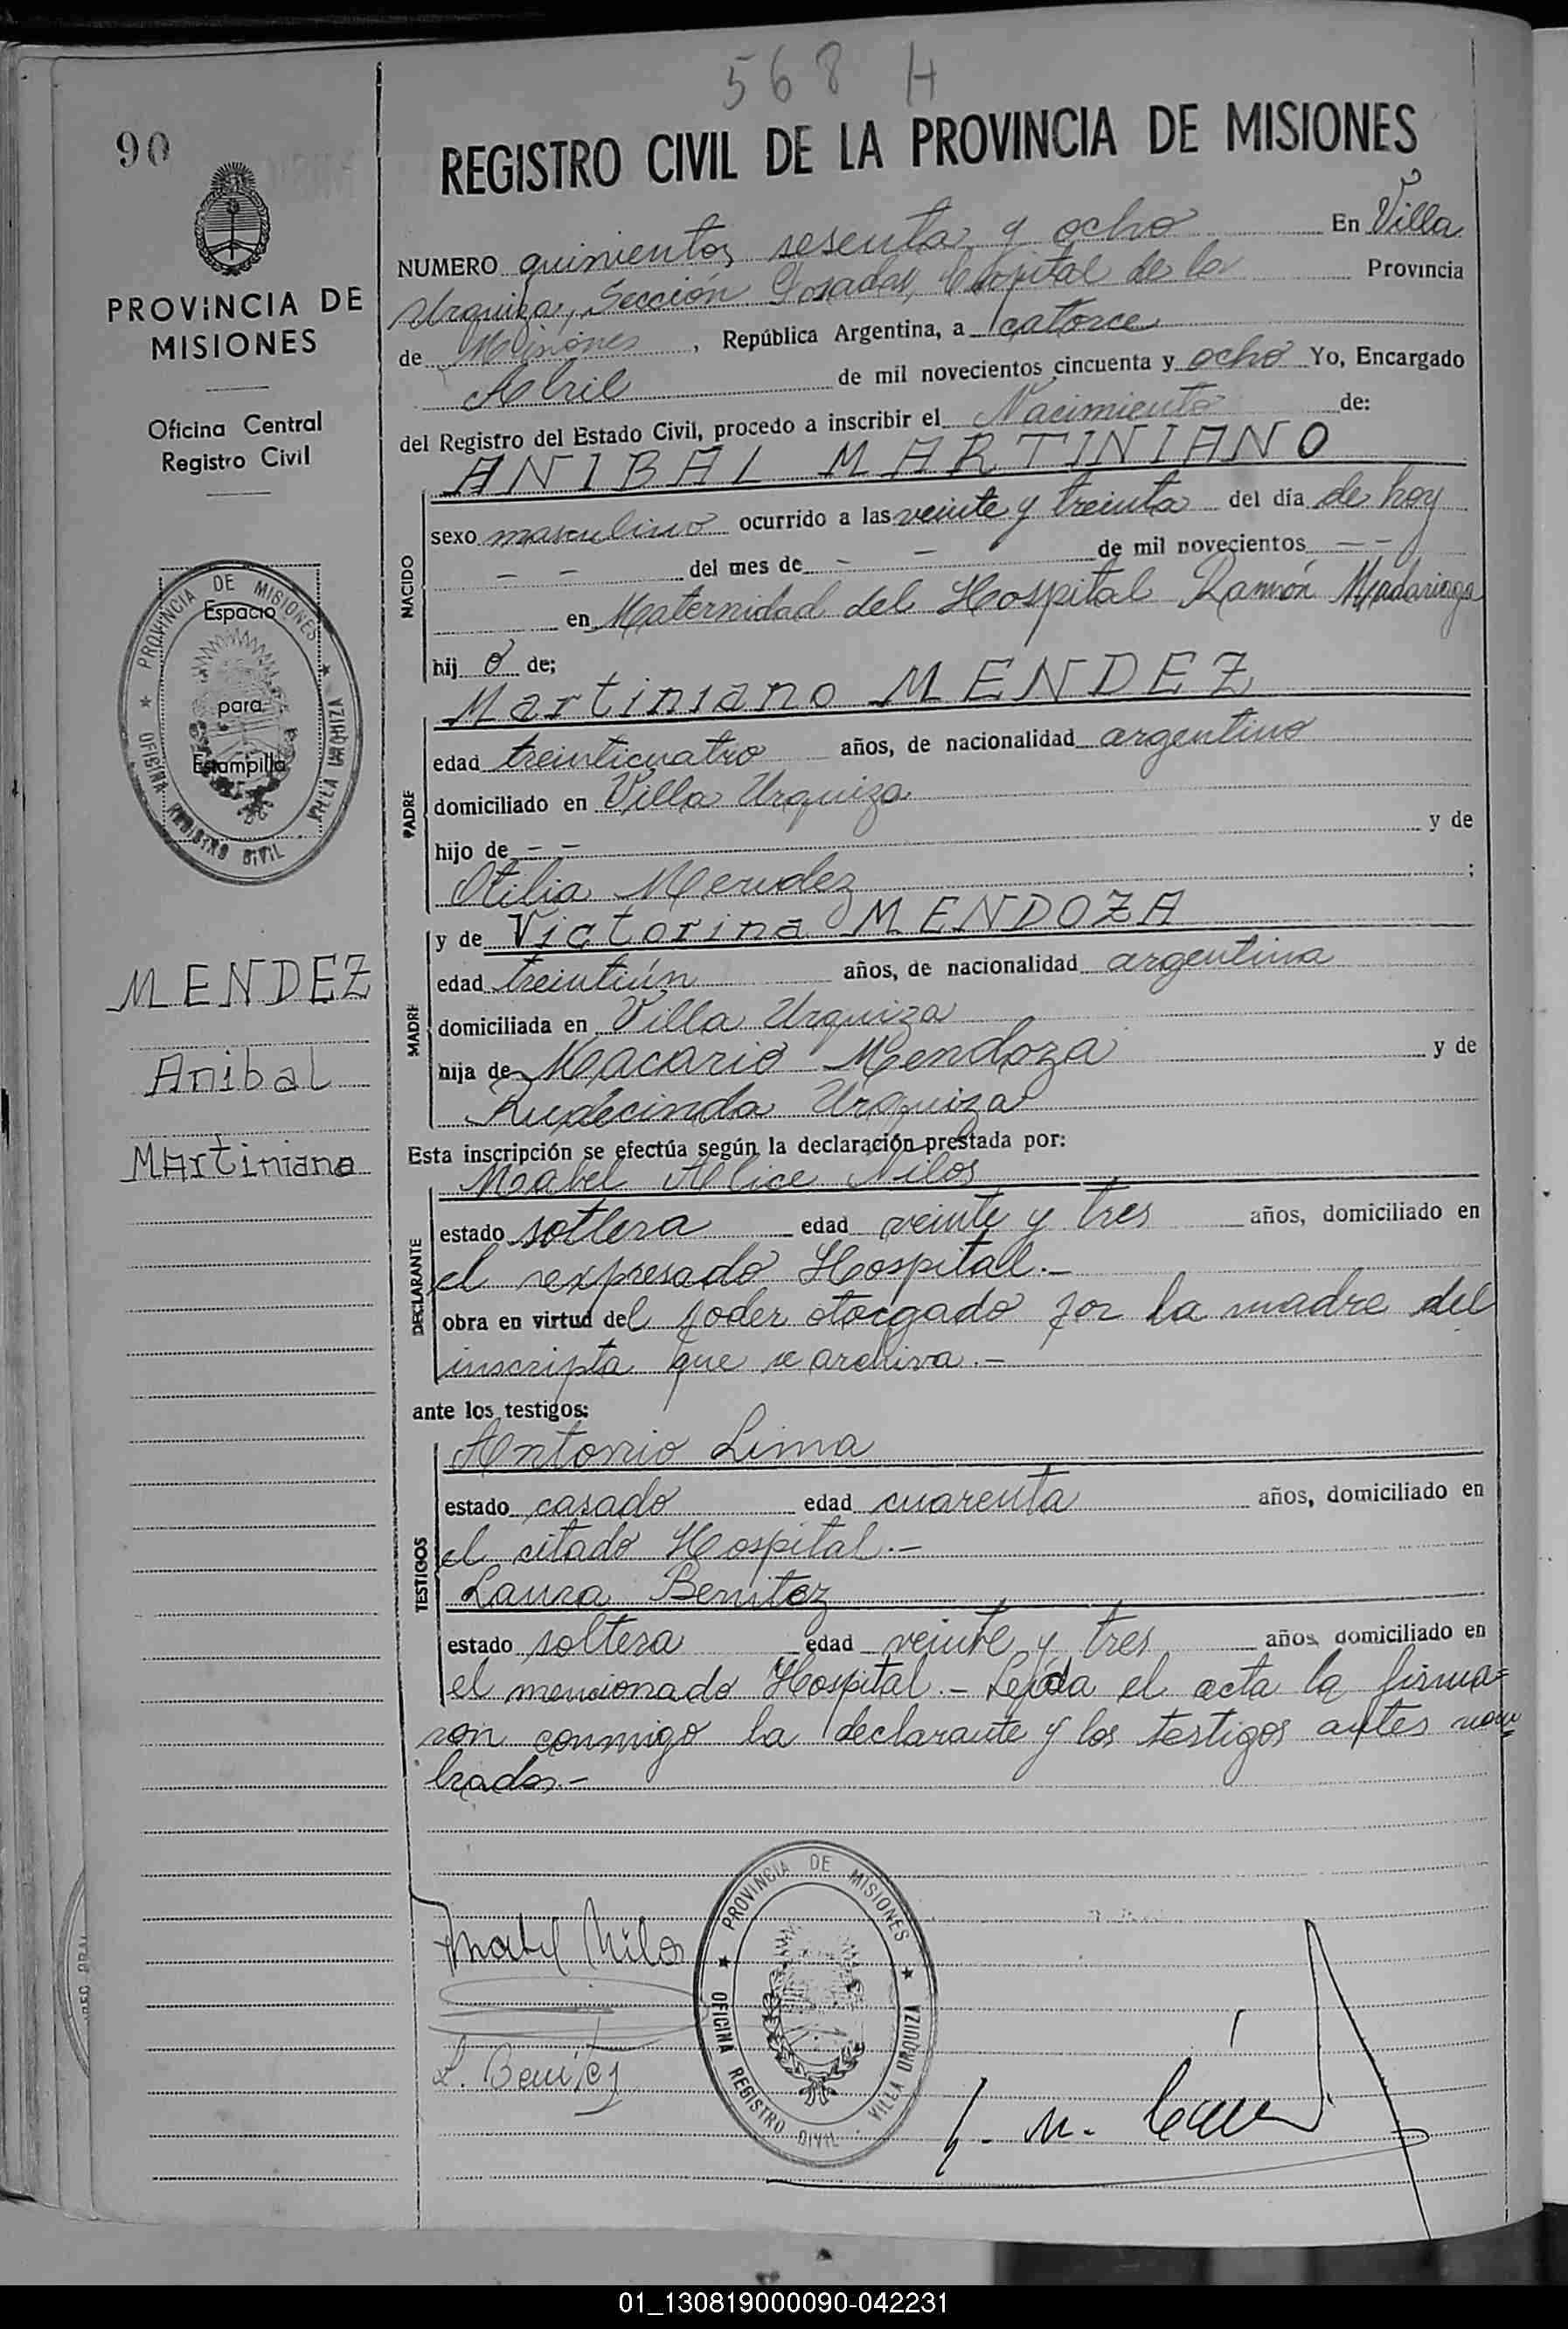 568 H
90
REGISTRO CIVIL DE LA PROVINCIA DE MISIONES
PROVINCIA DE
MISIONES
Oficina Central
Registro Civil
NUMERO quinientos sesenta y ocho En Villa
Urquiza, Sección Posadas, Capital de la Provincia
de Misiones, República Argentina, a catorce
Abril de mil novecientos cincuenta y ocho Yo, Encargado
del Registro del Estado Civil, procedo a inscribir el Nacimiento de:
ANIBAL MARTINIANO
NACIDO
sexo masculino ocurrido a las veinte y treinta del día de hoy
- - del mes de - - de mil novecientos - -
en Maternidad del Hospital Ramón Madariaga
hij o de:
Martiniano MENDEZ
PADRE
edad treinticuatro años, de nacionalidad argentino
domiciliado en Villa Urquiza
hijo de - - y de
Otilia Mendez ;
y de Victorina MENDOZA
MADRE
edad treintiún años, de nacionalidad argentina
domiciliada en Villa Urquiza
hija de Macario Mendoza y de
Rudecinda Urquiza
Esta inscripción se efectúa según la declaración prestada por:
Mabel Alice Nilos
DECLARANTE
estado soltera edad veinte y tres años, domiciliado en
el expresado Hospital.-
obra en virtud del poder otorgado por la madre del
inscripta que se archiva.-
ante los testigos:
Antonio Lima
TESTIGOS
estado casado edad cuarenta años, domiciliado en
el citado Hospital.-
Laura Benitez
estado soltera edad veinte y tres años domiciliado en
el mencionado Hospital.- Leída el acta la firma=
ron conmigo la declarante y los testigos antes nom=
brados.-
PROVINCIA DE MISIONES
OFICINA REGISTRO CIVIL - VILLA URQUIZA
Espacio
para
Estampilla
MENDEZ
Anibal
Martiniano
Mabel Nilos
L. Benitez
PROVINCIA DE MISIONES
OFICINA REGISTRO CIVIL - VILLA URQUIZA
01_130819000090-042231